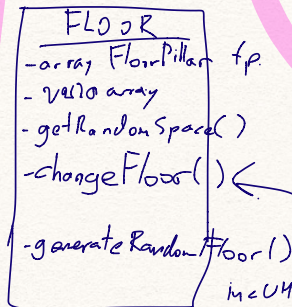 FLOOR
-array FloorPillar fp.
- array
-getRandomSpace()
-changeFloor()
-generateRandomFloor()